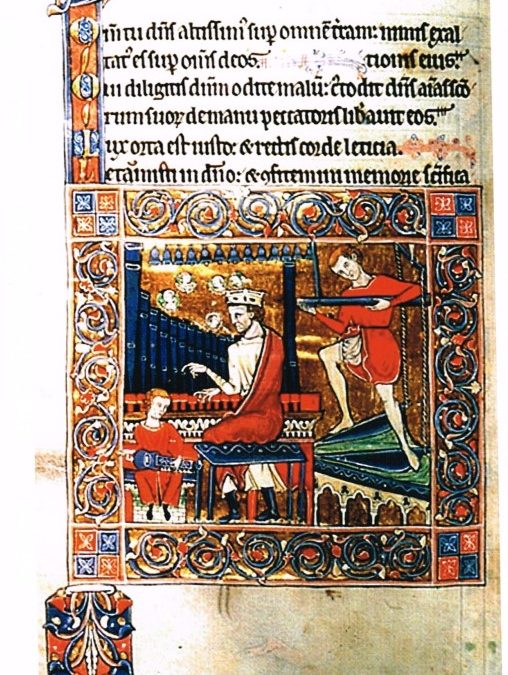 Qm̄ tu dñs altissimꝰ sup omnē t̄ram: nimis exal
tatꝰ es sup om̄s deos. tionis eius.
Qui diligitis dñm odite malū: c̄todit dñs aīas scō
rum suoꝝ de manu peccatoris lib̄avit eos.
Lux orta est iusto: & rectis corde leticia.
Letam̄ iusti in dño: & ꝯfitemini memorie sc̄ifica